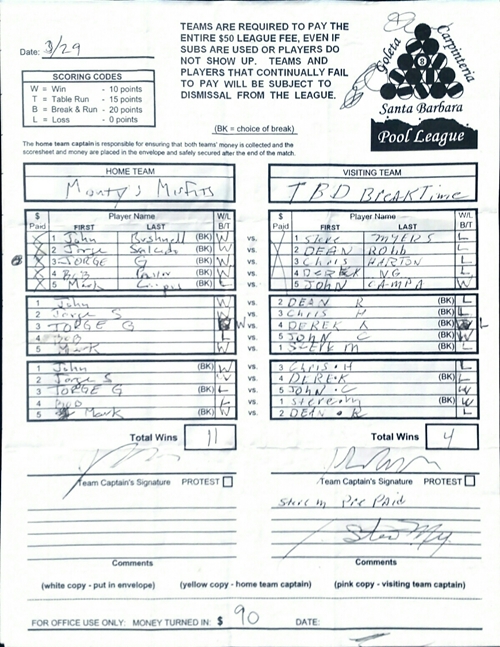 Date: 3/29
TEAMS ARE REQUIRED TO PAY THE
ENTIRE $50 LEAGUE FEE, EVEN IF
SUBS ARE USED OR PLAYERS DO
NOT SHOW UP. TEAMS AND
PLAYERS THAT CONTINUALLY FAIL
TO PAY WILL BE SUBJECT TO
DISMISSAL FROM THE LEAGUE.
(BK = choice of break)
Goleta Carpinteria
8
Santa Barbara
Pool League
SCORING CODES
W = Win - 10 points
T = Table Run - 15 points
B = Break & Run - 20 points
L = Loss - 0 points
The home team captain is responsible for ensuring that both teams' money is collected and the
scoresheet and money are placed in the envelope and safely secured after the end of the match.
HOME TEAM VISITING TEAM
Monty's Misfits TBD BreakTime
$ Paid Player Name FIRST LAST W/L B/T $ Paid Player Name FIRST LAST W/L B/T
1 John Bushnell (BK) W vs. 1 Steve MYERS L
2 Jorge Salcido (BK) W vs. 2 DEAN ROBB L
3 JORGE G (BK) W vs. 3 CHRIS L
4 BOB (BK) vs. 4 DEREK NG L
5 Mark (BK) L vs. 5 JOHN CAMPA W
1 John W vs. 2 DEAN R (BK) L
2 Jorge S W vs. 3 Chris H (BK) L
3 JORGE G W vs. 4 DEREK (BK) L
4 BOB L vs. 5 JOHN C (BK) W
5 Mark W vs. 1 (BK) L
1 John (BK) W vs. 3 Chris H L
2 Jorge S (BK) vs. 4 DEREK L
3 JORGE G (BK) L vs. 5 JOHN C W
4 BOB (BK) L vs. 1 W
5 Mark (BK) W vs. 2 DEAN R L
Total Wins 11 Total Wins 4
Team Captain's Signature PROTEST Team Captain's Signature PROTEST
Steve M Pre Paid
Comments Comments
(white copy - put in envelope) (yellow copy - home team captain) (pink copy - visiting team captain)
FOR OFFICE USE ONLY: MONEY TURNED IN: $ 90 DATE: